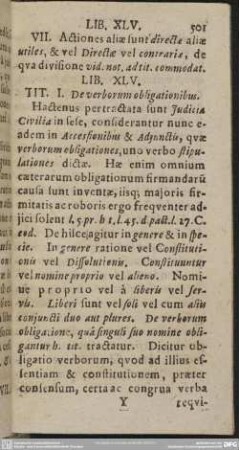 LIB. XLV. 501
VII. Actiones aliæ sunt directæ aliæ
utiles, & vel Directæ vel contrariæ, de
qva divisione vid. not. ad tit. commodat.
LIB. XLV.
TIT. I. De verborum obligationibus.
Hactenus pertractata sunt Judicia
Civilia in sese, considerantur nunc e-
adem in Accessionibus & Adjunctis, qvæ
verborum obligationes, uno verbo stipu-
lationes dictæ. Hæ enim omnium
cæterarum obligationum firmandarū
causa sunt inventæ, iisq; majoris fir-
mitatis ac roboris ergo freqventer ad-
jici solent l. 5. pr. h. t. l. 45. d. pact. l. 27. C.
eod. De hisce agitur in genere & in spe-
cie. In genere ratione vel Constituti-
onis vel Dissolutionis. Constituuntur
vel nomine proprio vel alieno. Nomi-
ne proprio vel à liberis vel ser-
vis. Liberi sunt vel soli vel cum aliis
conjuncti duo aut plures. De verborum
obligatione, quâ singuli suo nomine obli-
gantur h. tit. tractatur. Dicitur ob-
ligatio verborum, qvod ad illius es-
sentiam & constitutionem, præter
consensum, certa ac congrua verba
Y reqvi-